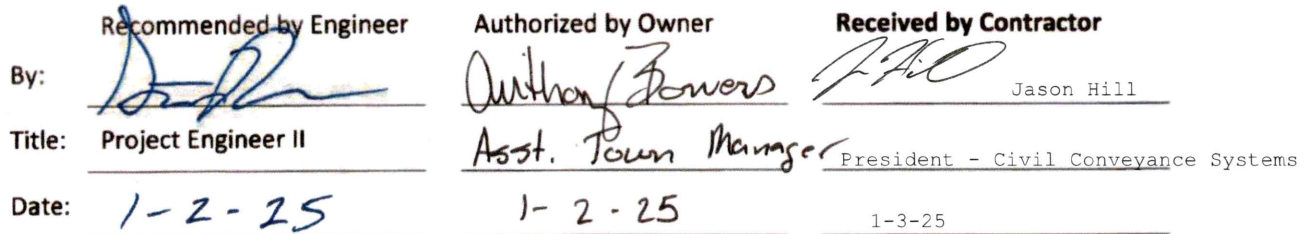 Recommended by Engineer Authorized by Owner Received by Contractor
By: Anthony Bowers Jason Hill
Title: Project Engineer II Asst. Town Manager President - Civil Conveyance Systems
Date: 1-2-25 1-2-25 1-3-25